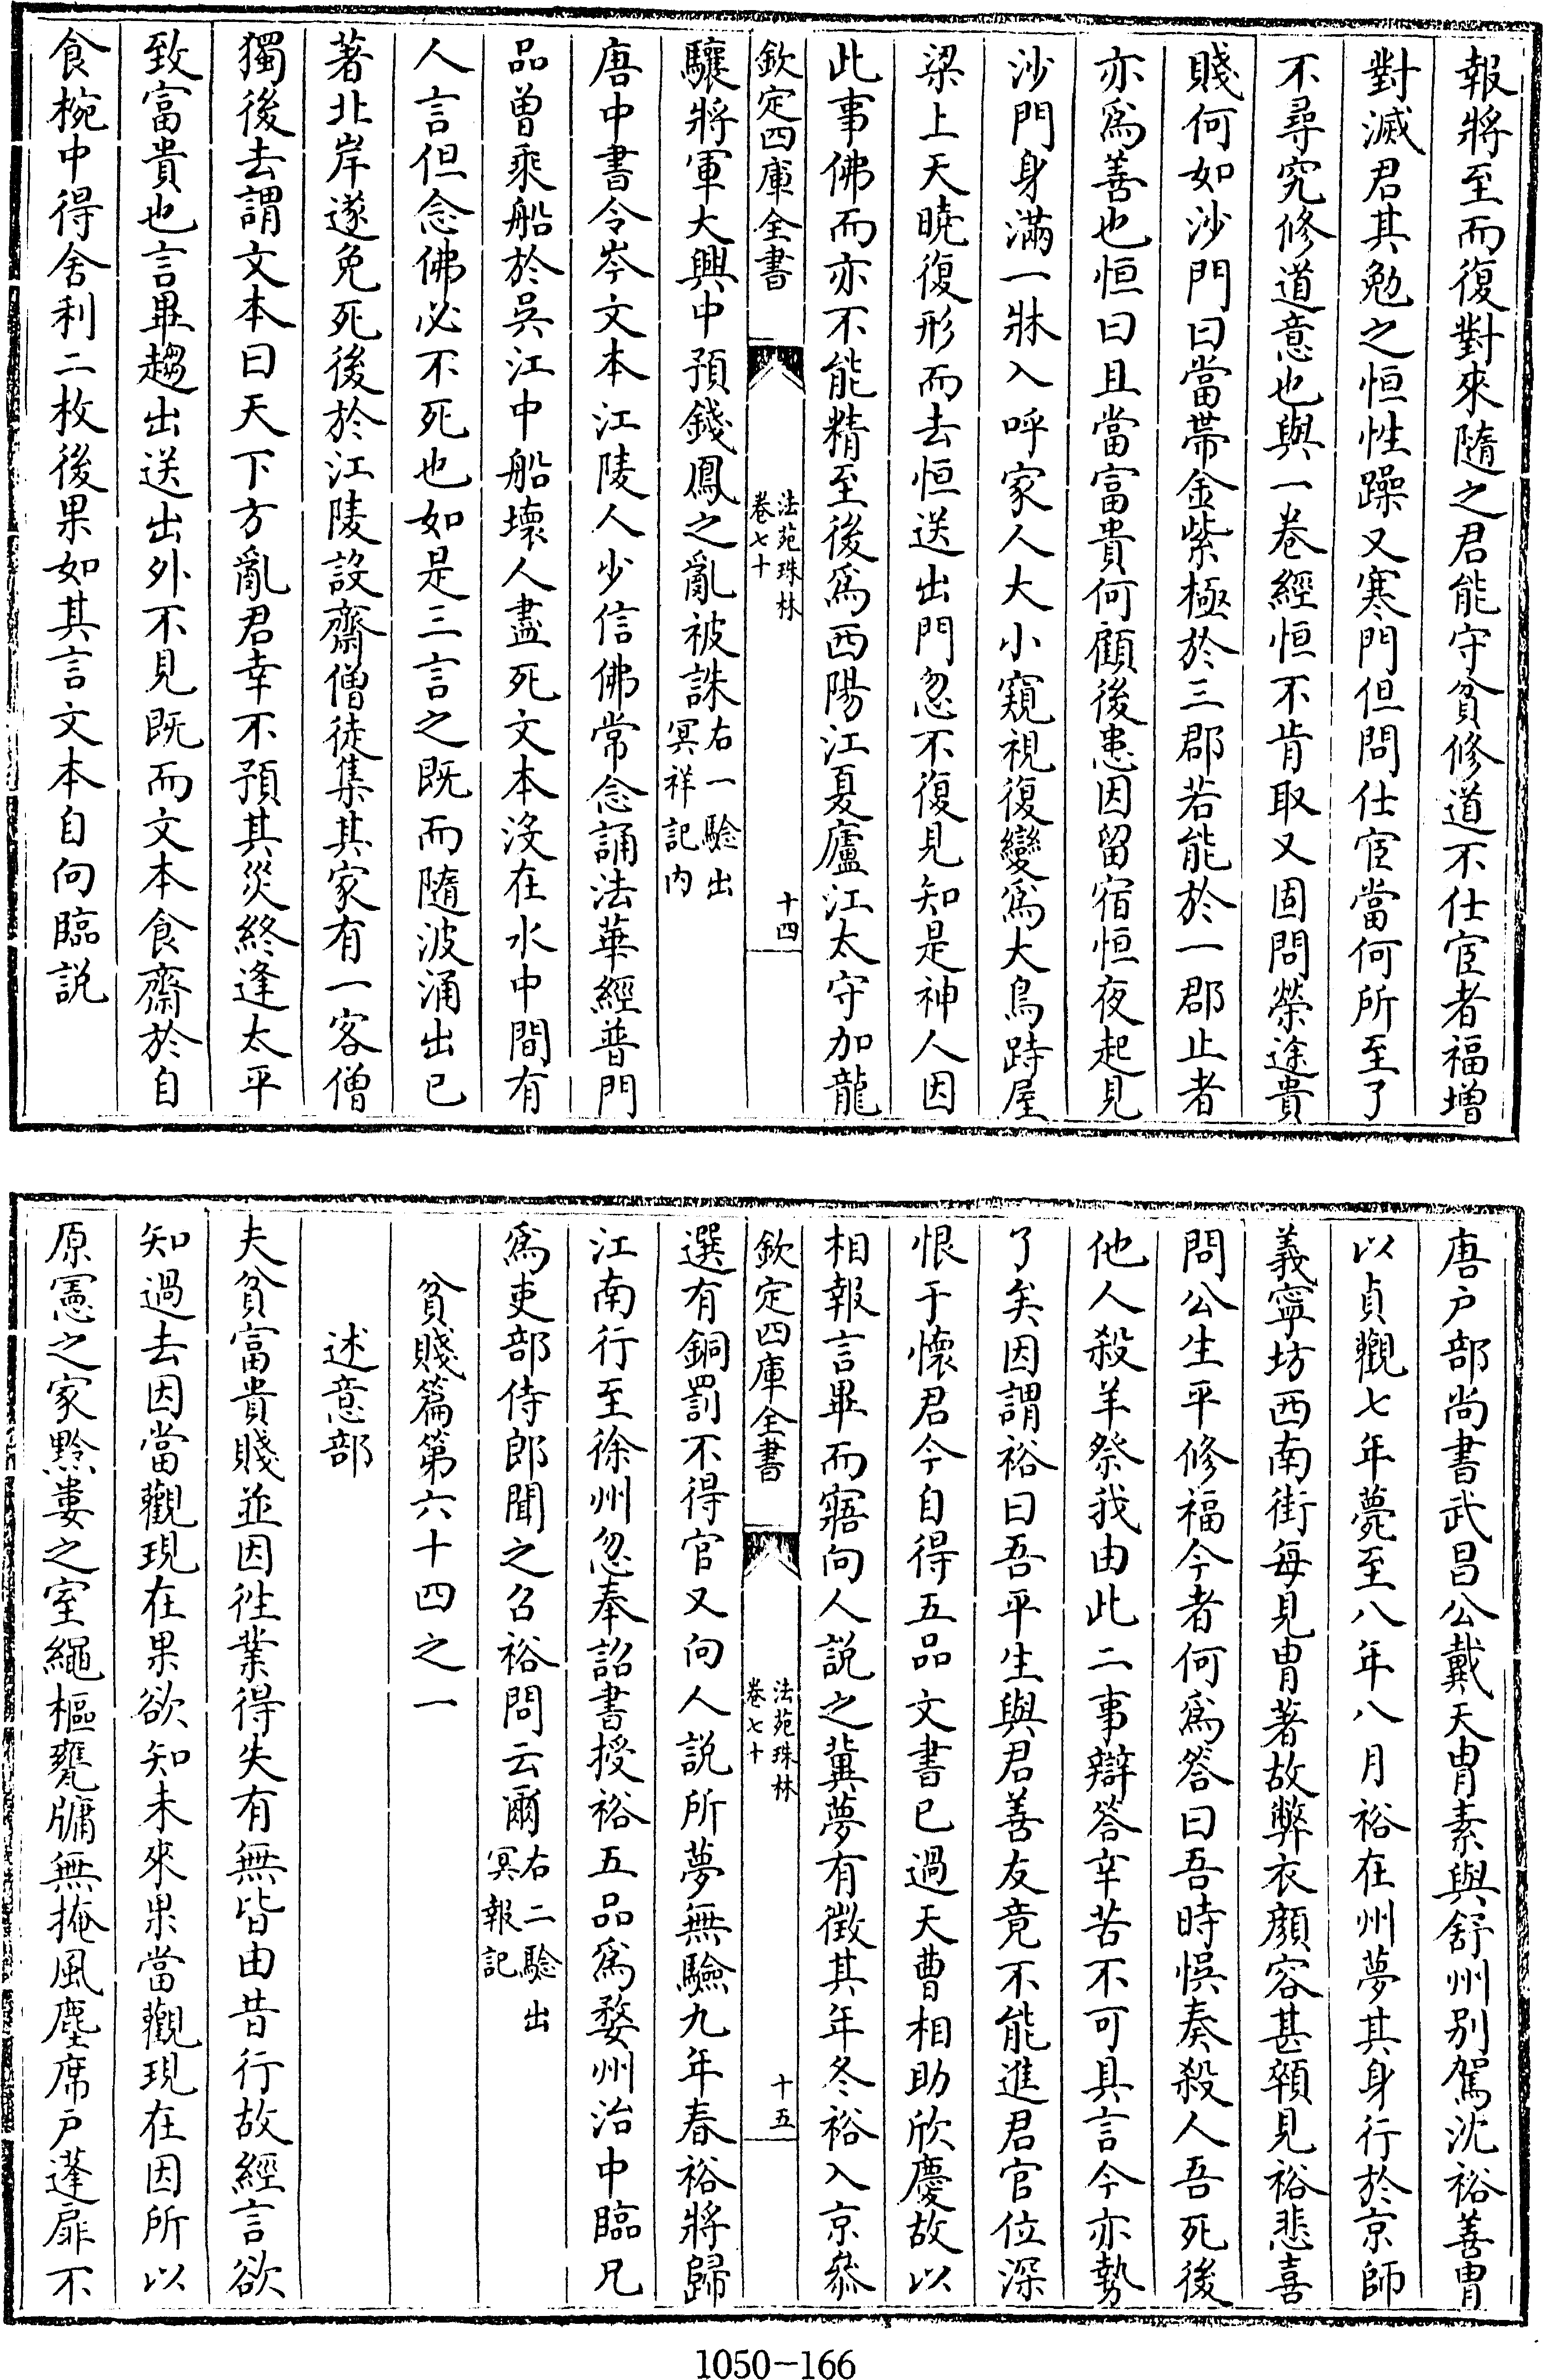 報將至而復對來隨之君能守貧修道不仕宦者福增
對滅君其勉之恒性躁又寒門但問仕宦當何所至了
不尋究修道意也與一卷經恒不肯取又固問榮途貴
賤何如沙門曰當帶金紫極於三郡若能於一郡止者
亦爲善也恒曰且當富貴何顧後患因留宿恒夜起見
沙門身滿一牀入呼家人大小窺視復變爲大鳥跱屋
梁上天曉復形而去恒送出門忽不復見知是神人因
此事佛而亦不能精至後爲西陽江夏廬江太守加龍
欽定四庫全書
法苑珠林
卷七十
十四
驤將軍大興中預錢鳳之亂被誅右一驗出
冥祥記内
唐中書令岑文本江陵人少信佛常念誦法華經普門
品曾乘船於吳江中船壞人盡死文本沒在水中間有
人言但念佛必不死也如是三言之既而隨波涌出已
著北岸遂免死後於江陵設齋僧徒集其家有一客僧
獨後去謂文本曰天下方亂君幸不預其災終逢太平
致富貴也言畢趨出送出外不見既而文本食齋於自
食椀中得舍利二枚後果如其言文本自向臨説
唐户部尚書武昌公戴天胄素與舒州别駕沈裕善胄
以貞觀七年薨至八年八月裕在州夢其身行於京師
義寧坊西南街每見胄著故弊衣顔容甚顇見裕悲喜
問公生平修福今者何爲答曰吾時悞奏殺人吾死後
他人殺羊祭我由此二事辯答辛苦不可具言今亦勢
了矣因謂裕曰吾平生與君善友竟不能進君官位深
恨于懷君今自得五品文書已過天曹相助欣慶故以
相報言畢而寤向人説之冀夢有徵其年冬裕入京叅
欽定四庫全書
法苑珠林
卷七十
十五
選有銅罰不得官又向人説所夢無驗九年春裕將歸
江南行至徐州忽奉詔書授裕五品爲婺州治中臨兄
爲吏部侍郎聞之召裕問云爾右二驗出
冥報記
貧賤篇第六十四之一
述意部
夫貧富貴賤並因徃業得失有無皆由昔行故經言欲
知過去因當觀現在果欲知未來果當觀現在因所以
原憲之家黔婁之室繩樞甕牖無掩風塵席户蓬扉不
1050-166